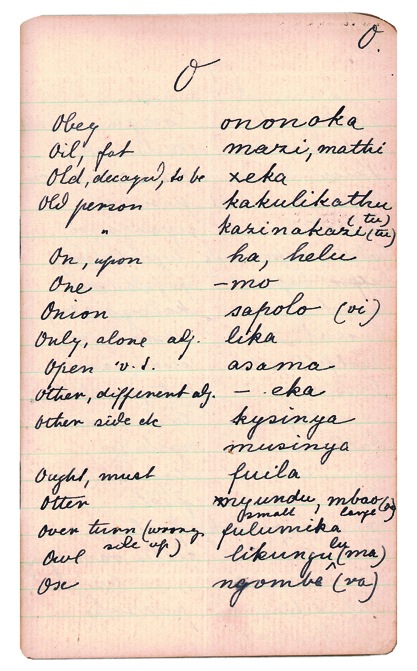 O.
O
Obey ononoka
Oil, fat mazi, mathi
Old, decayed, to be zeka
Old person kakulikathu (tu)
" kazinakazi (tu)
On, upon ha, helu
One -mo
Onion sapolo (vi)
Only, alone adj. lika
Open v.i. asama
Other, different adj. - eka
Other side etc kysinya
musinya
Ought, must fuila
Otter myundu, mbao
small large
Over turn (wrong side up) fulumika
Owl likungulu (ma)
Ox ngombe (va)